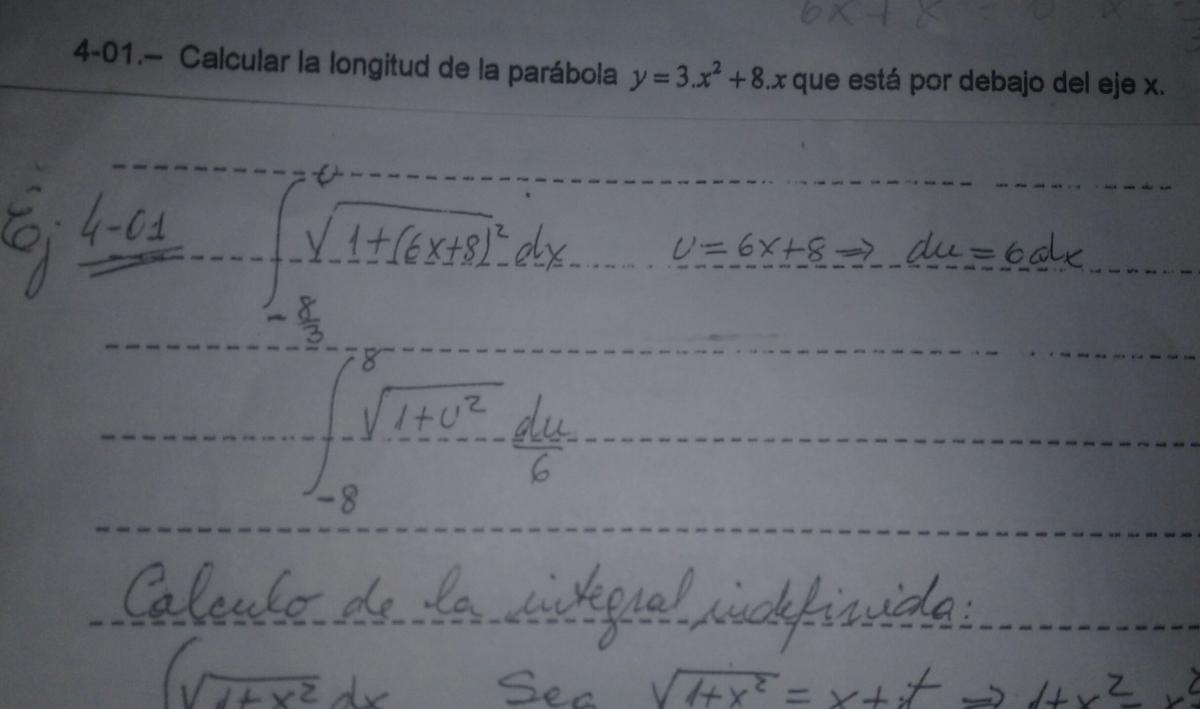 6x+8=0 x=
4-01.– Calcular la longitud de la parábola y = 3.x² + 8.x que está por debajo del eje x.
Ej 4-01 ∫_{-8/3}^{0} √(1+(6x+8)²) dx u = 6x+8 ⇒ du = 6dx
∫_{-8}^{8} √(1+u²) du/6
Calculo de la integral indefinida:
∫√(1+x²) dx Sea √(1+x²) = x+t ⇒ 1+x²=x²